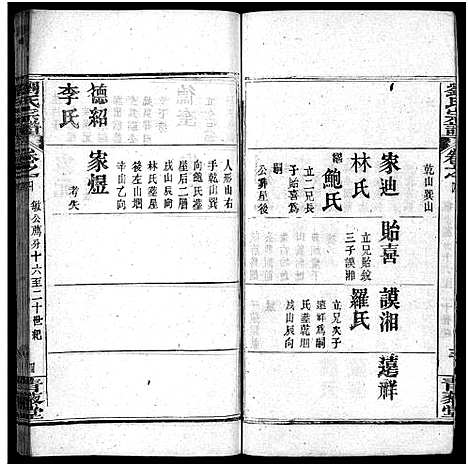 劉氏宗譜
卷之
乾山巽山
家廸
貽喜
謨湘
遠祥
林氏
立兄貽紋
三子謨湘
羅氏
繼鮑氏
立二兄長
子貽喜爲
公葬屋後
立兄夫子
遠祥爲嗣
氏葬乾朏
戌山辰向
青藜堂
人形山右
手乾山巽
向鮑氏葬
屋后二層
林氏葬屋
後左山堋
辛山乙向
德紹
家煜
考失
李氏
劉氏宗譜
卷之
徽公薦分十六至二十世紀
四
青藜堂